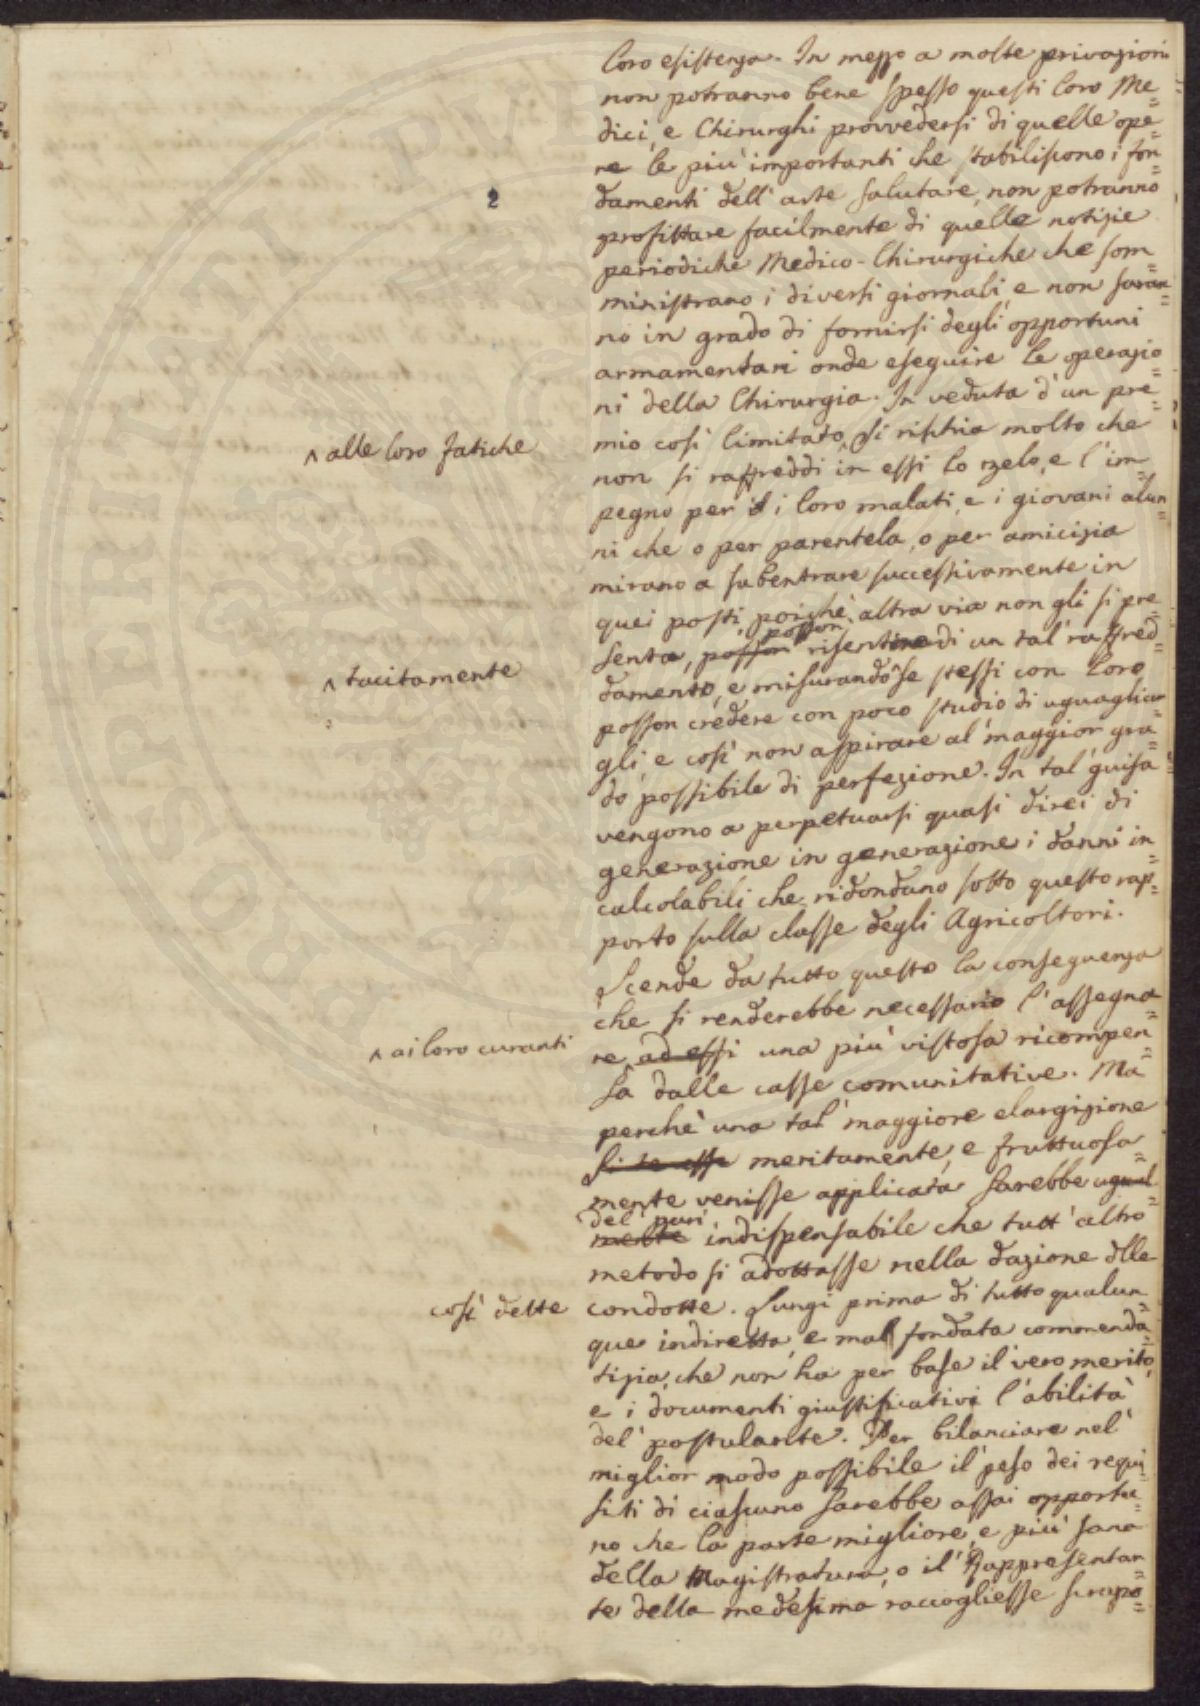 loro esistenza. In mezzo a molte privazioni
non potranno bene spesso questi loro Me=
dici, e Chirurghi provvedersi di quelle ope=
re le più importanti che stabiliscono i fon=
damenti dell'arte salutare, non potranno
profittare facilmente di quelle notizie
periodiche Medico-Chirurgiche che som=
ministrano i diversi giornali, e non saran=
no in grado di fornirsi degli opportuni
armamentari onde eseguire le operazio=
ni della Chirurgia. In veduta d'un pre=
mio così limitato ^ si rischia molto che
^ alle loro fatiche
non si raffreddi in essi lo zelo, e l'im=
pegno per i loro malati, e i giovani alun=
ni che o per parentela, o per amicizia
mirano a subentrare successivamente in
quei posti, poichè altra via non gli si pre=
senta, posson risentire di un tal raffred=
posson
^ tacitamente
damento, e misurando ^ se stessi con loro
posson credere con poco studio di uguagliar=
gli, e così non aspirare al maggior gra=
do possibile di perfezione. In tal guisa
vengono a perpetuarsi quasi direi di
generazione in generazione i danni in=
calcolabili che ridondano sotto questo rap=
porto sulla classe degli Agricoltori.
Scende da tutto questo la conseguenza
che si renderebbe necessario l'assegna=
^ ai loro curanti
re ^ ad essi una più vistosa ricompen=
sa dalle casse comunitative. Ma
perchè una tal maggiore elargizione
meritamente, e fruttuosa=
mente venisse applicata sarebbe ugual=
del pari
mente indispensabile che tutt'altro
metodo si adottasse nella dazione dlle
così dette condotte. Lungi prima di tutto qualun=
que indiretta, e mal fondata commenda=
tizia, che non ha per base il vero merito,
e i documenti giustificativi l'abilità
del postulante. Per bilanciare nel
miglior modo possibile il peso dei requi=
siti di ciascuno sarebbe assai opportu=
no che la parte migliore, e più sana
della Magistratura, o il Rappresentan=
te della medesima raccogliesse scrupo=
2